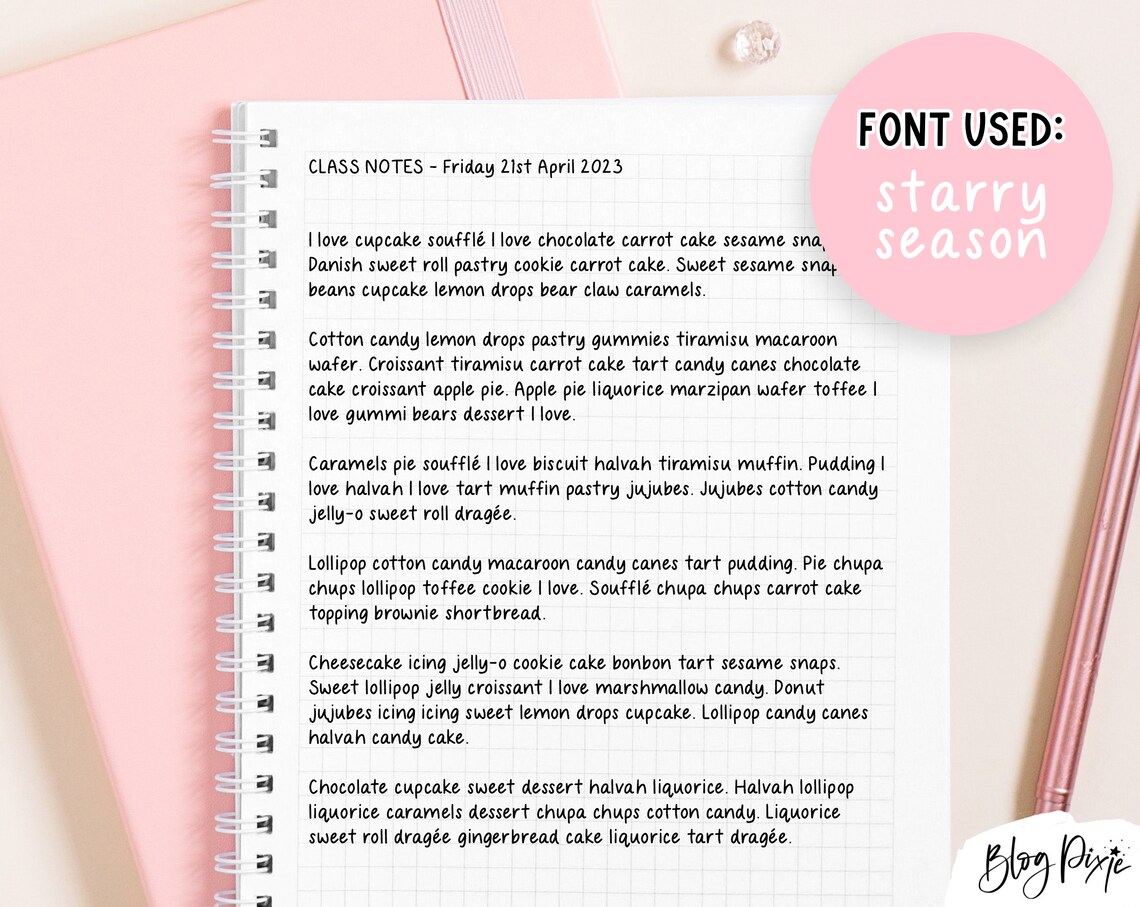 FONT USED:
starry
season
CLASS NOTES - Friday 21st April 2023
I love cupcake soufflé I love chocolate carrot cake sesame
Danish sweet roll pastry cookie carrot cake. Sweet sesame
beans cupcake lemon drops bear claw caramels.
Cotton candy lemon drops pastry gummies tiramisu macaroon
wafer. Croissant tiramisu carrot cake tart candy canes chocolate
cake croissant apple pie. Apple pie liquorice marzipan wafer toffee I
love gummi bears dessert I love.
Caramels pie soufflé I love biscuit halvah tiramisu muffin. Pudding I
love halvah I love tart muffin pastry jujubes. Jujubes cotton candy
jelly-o sweet roll dragée.
Lollipop cotton candy macaroon candy canes tart pudding. Pie chupa
chups lollipop toffee cookie I love. Soufflé chupa chups carrot cake
topping brownie shortbread.
Cheesecake icing jelly-o cookie cake bonbon tart sesame snaps.
Sweet lollipop jelly croissant I love marshmallow candy. Donut
jujubes icing icing sweet lemon drops cupcake. Lollipop candy canes
halvah candy cake.
Chocolate cupcake sweet dessert halvah liquorice. Halvah lollipop
liquorice caramels dessert chupa chups cotton candy. Liquorice
sweet roll dragée gingerbread cake liquorice tart dragée.
Blog Pixie